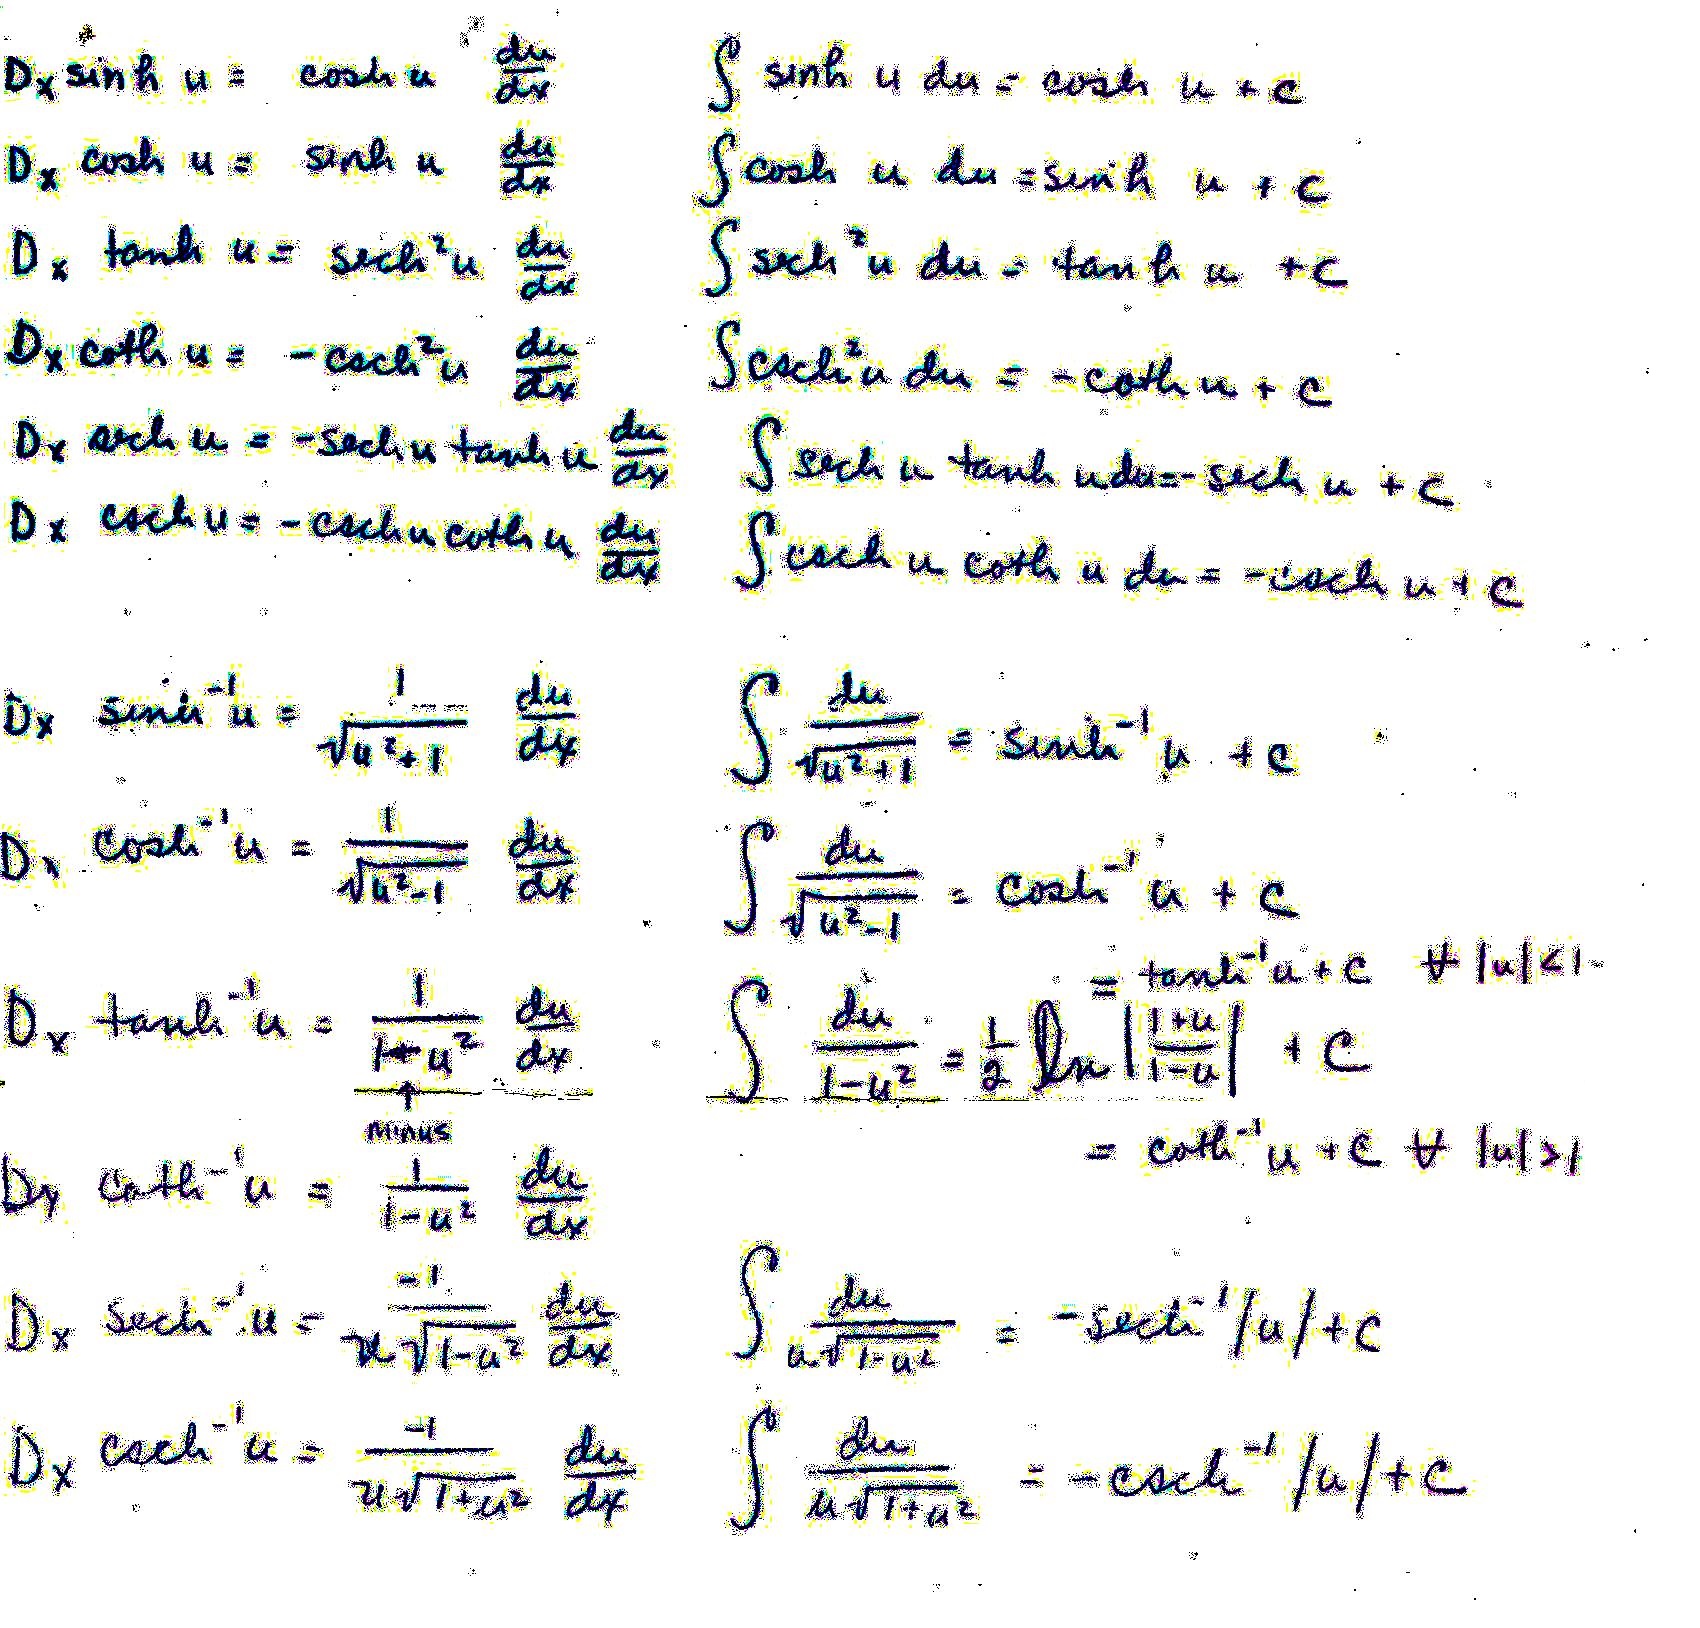 Dx sinh u = cosh u du/dx    ∫ sinh u du = cosh u + c
Dx cosh u = sinh u du/dx    ∫ cosh u du = sinh u + c
Dx tanh u = sech²u du/dx    ∫ sech²u du = tanh u + c
Dx coth u = -csch²u du/dx    ∫ csch²u du = -coth u + c
Dx sech u = -sech u tanh u du/dx    ∫ sech u tanh u du = -sech u + c
Dx csch u = -csch u coth u du/dx    ∫ csch u coth u du = -csch u + c
Dx sinh⁻¹u = 1/√(u²+1) du/dx    ∫ du/√(u²+1) = sinh⁻¹u + c
Dx cosh⁻¹u = 1/√(u²-1) du/dx    ∫ du/√(u²-1) = cosh⁻¹u + c
= tanh⁻¹u + c ∀ |u|<1
Dx tanh⁻¹u = 1/(1-u²) du/dx    ∫ du/(1-u²) = 1/2 ln |(1+u)/(1-u)| + c
↑
MINUS
= coth⁻¹u + c ∀ |u|>1
Dx coth⁻¹u = 1/(1-u²) du/dx
Dx sech⁻¹u = -1/(u√(1-u²)) du/dx    ∫ du/(u√(1-u²)) = -sech⁻¹|u| + c
Dx csch⁻¹u = -1/(u√(1+u²)) du/dx    ∫ du/(u√(1+u²)) = -csch⁻¹|u| + c